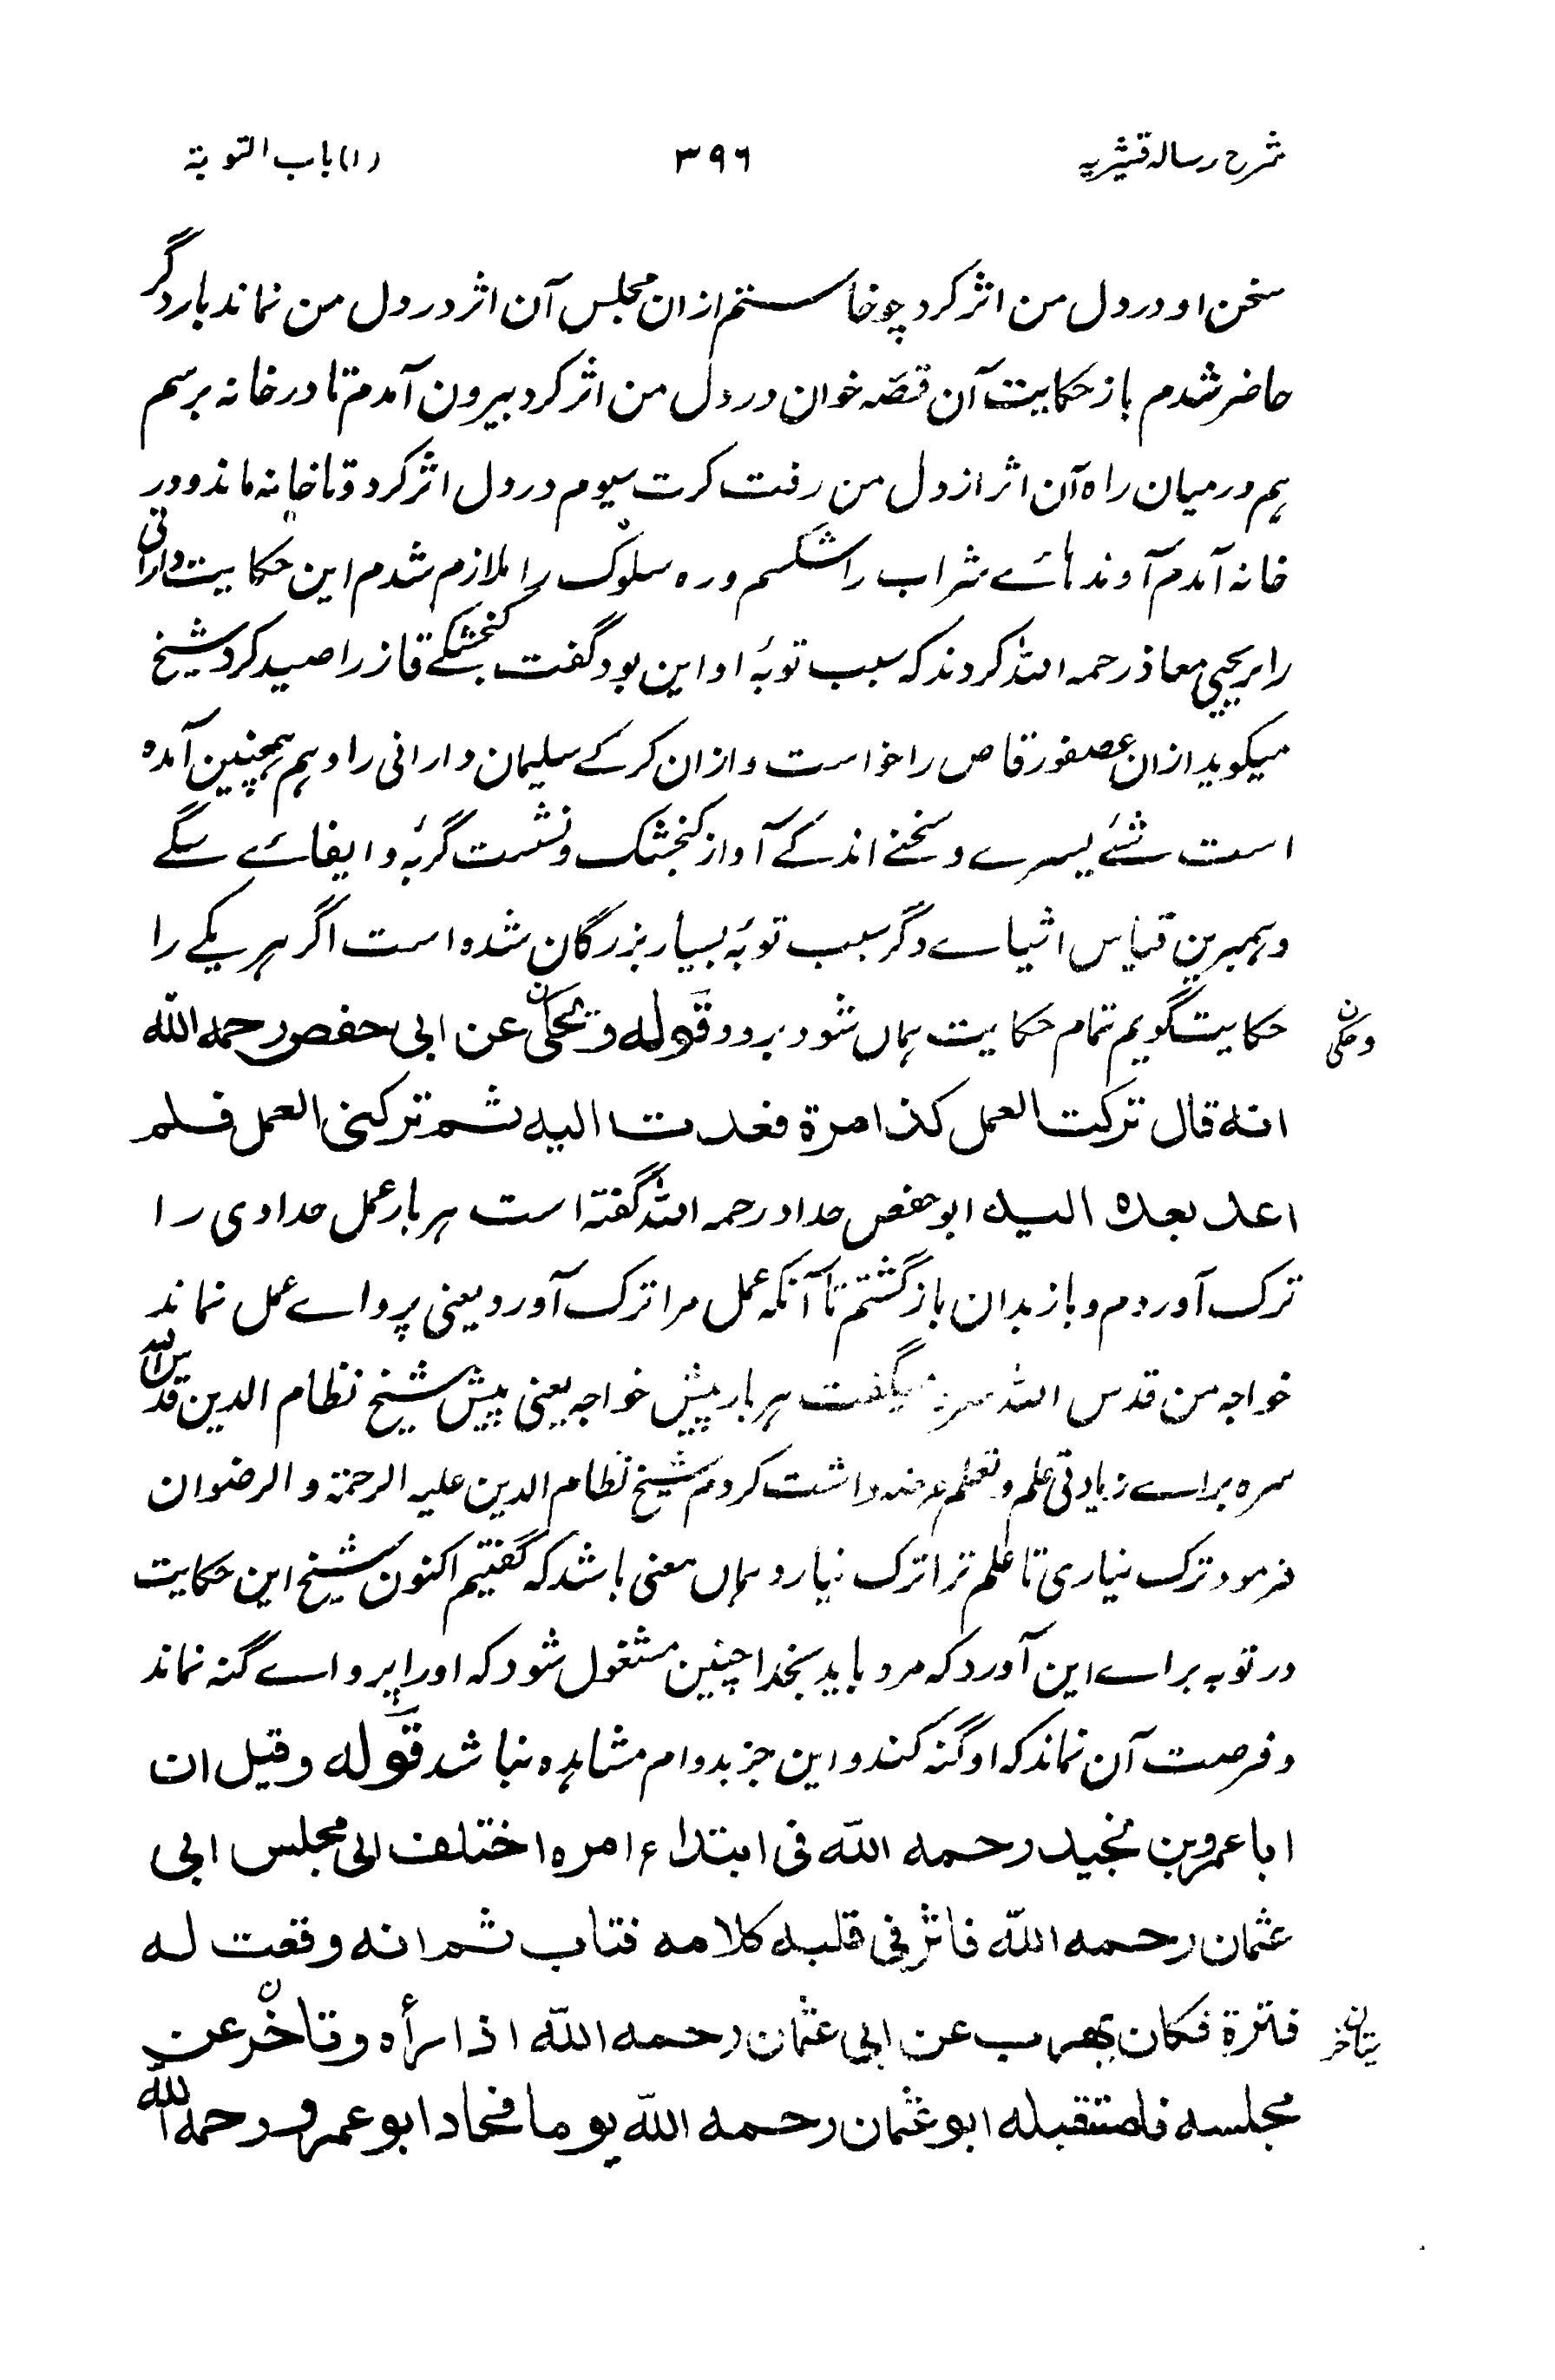 شرح رسالہ قشیریہ ۳۹۶ (۱) باب التوبة
سخن او در دل من اثر کرد چو خاستم ازان مجلس آن اثر در دل من نماند بار دگر
حاضر شدم باز حکایت آن قصّہ خوان در دل من اثر کرد بیرون آمدم تا در خانہ برسم
ہم درمیان راہ آن اثر از دل من رفت کرت سیوم در دل اثر کرد و تا خانہ ماند و در
خانہ آمدم آوندہائے شراب را شکستم و رہ سلوک را ملازم شدم این حکایت دارانی
را بر یحیی معاذ رحمہ اللہ کردند کہ سبب توبۂ او این بود گفت کنجشکے قاز را صید کرد شیخ
میگوید ازان عصفور قاص را خواست و ازان کرکے سلیمان دارانی را و ہم ہمچنین آمدہ
است شئے یسرے و سخنے اندکے آواز کنجشک و نشست گربہ و ایفائے سگے
و ہمبرین قیاس اشیاے دگر سبب توبۂ بسیار بزرگان شدہ است اگر ہر یکے را
حکایت گویم تمام حکایت ہماں شود برود قولہ ویحکی عن ابی حفص رحمہ اللہ
وحکی ن
انہ قال ترکت العمل کذا مرة فعدت الیہ ثم ترکنی العمل فلم
اعد بعدہ الیہ ابو حفص حداد رحمہ اللہ گفتہ است ہر بار عمل حدادی را
ترک آوردم و باز بدان باز گشتم تا آنکہ عمل مرا ترک آورد یعنی پرواے عمل نماند
خواجہ من قدس اللہ سرہ میگفت ہر بار پیش خواجہ یعنی پیش شیخ نظام الدین قدس اللہ
سرہ براے زیادتی علم و تعلم عرضداشت کردم شیخ نظام الدین علیہ الرحمة و الرضوان
فرمود ترک نیاری تا علم ترا ترک نیارد ہماں معنی باشد کہ گفتیم اکنون شیخ این حکایت
در توبہ براے این آورد کہ مرد باید بخدا چنین مشغول شود کہ او را پرواے گنہ نماند
و فرصت آن نماند کہ او گنہ کند و این جز بدوام مشاہدہ نباشد قولہ وقیل ان
اباعمرو بن نجید رحمہ اللہ فی ابتداء امرہ اختلف الی مجلس ابی
عثمان رحمہ اللہ فاثر فی قلبہ کلامہ فتاب ثم انہ وقعت لہ
فترة فکان یھرب عن ابی عثمان رحمہ اللہ اذا رأہ وتاخّر عن
یتاخر ن
مجلسہ فاستقبلہ ابو عثمان رحمہ اللہ یوما فحاد ابو عمرو رحمہ اللہ